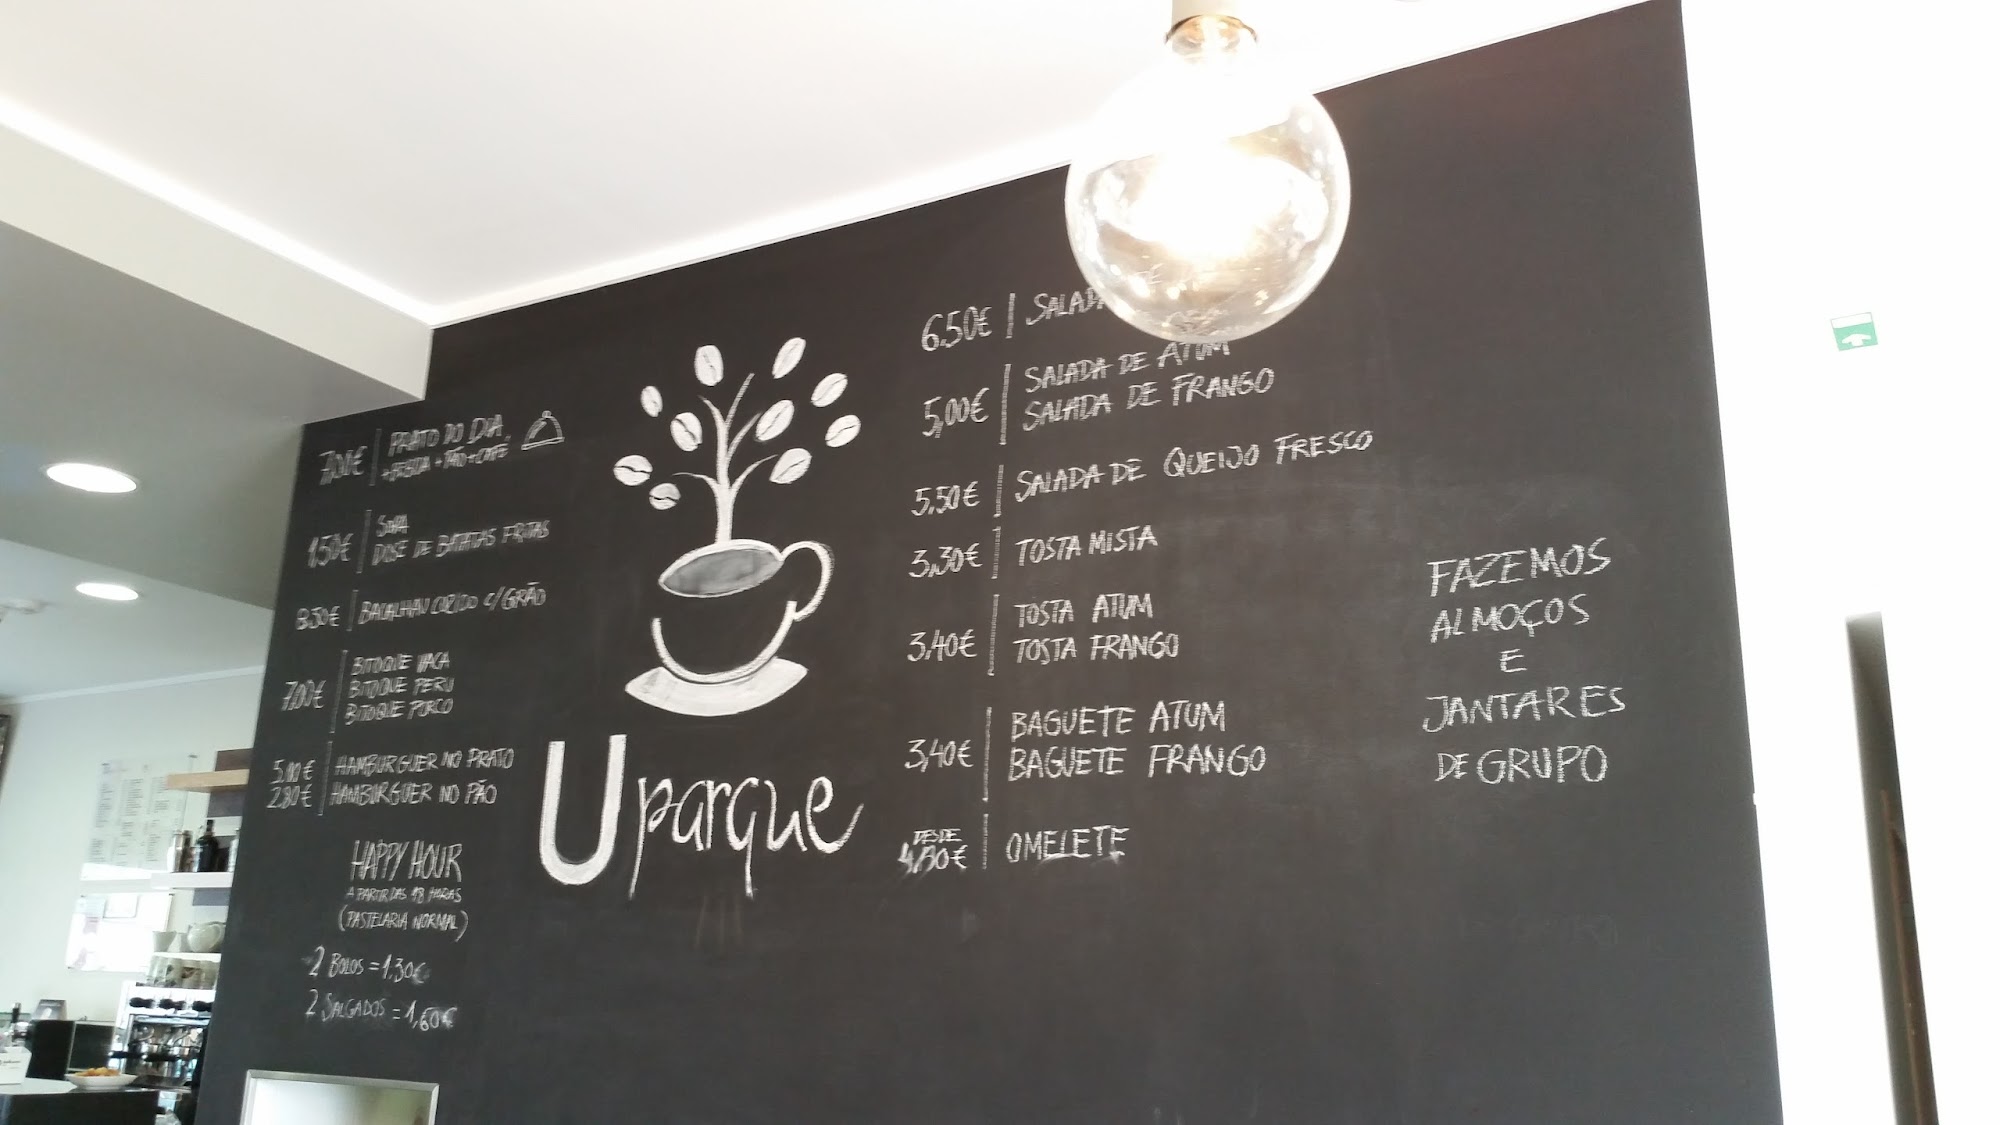 7,00€ PRATO DO DIA
+BEBIDA+PÃO+CAFÉ
1,50€ SOPA
DOSE DE BATATAS FRITAS
8,50€ BACALHAU COZIDO C/GRÃO
7,00€ BITOQUE VACA
BITOQUE PERU
BITOQUE PORCO
5,00€ HAMBURGUER NO PRATO
2,80€ HAMBURGUER NO PÃO
HAPPY HOUR
A PARTIR DAS 18 HORAS
(PASTELARIA NORMAL)
2 BOLOS = 1,30€
2 SALGADOS = 1,60€
Uparque
6.50€ SALADA
5,00€ SALADA DE ATUM
SALADA DE FRANGO
5,50€ SALADA DE QUEIJO FRESCO
3,30€ TOSTA MISTA
3,40€ TOSTA ATUM
TOSTA FRANGO
3,40€ BAGUETE ATUM
BAGUETE FRANGO
DESDE
OMELETE
FAZEMOS
ALMOÇOS
E
JANTARES
DE GRUPO